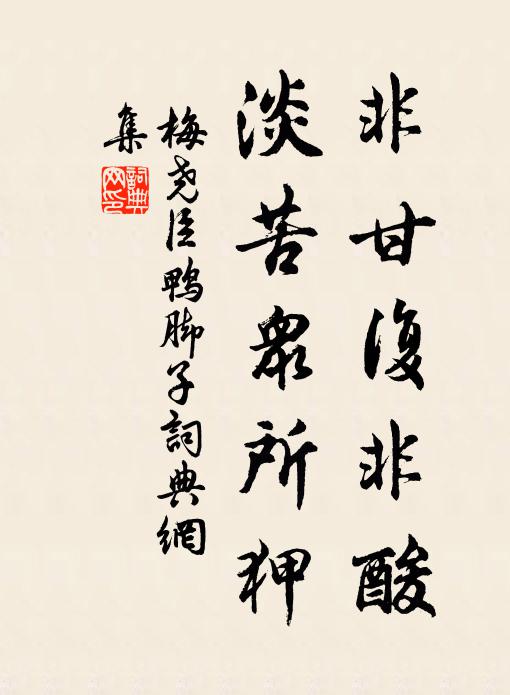 非甘復非酸
淡苦眾所狎
梅堯臣鴨脚子詞典網
集
詞典網印